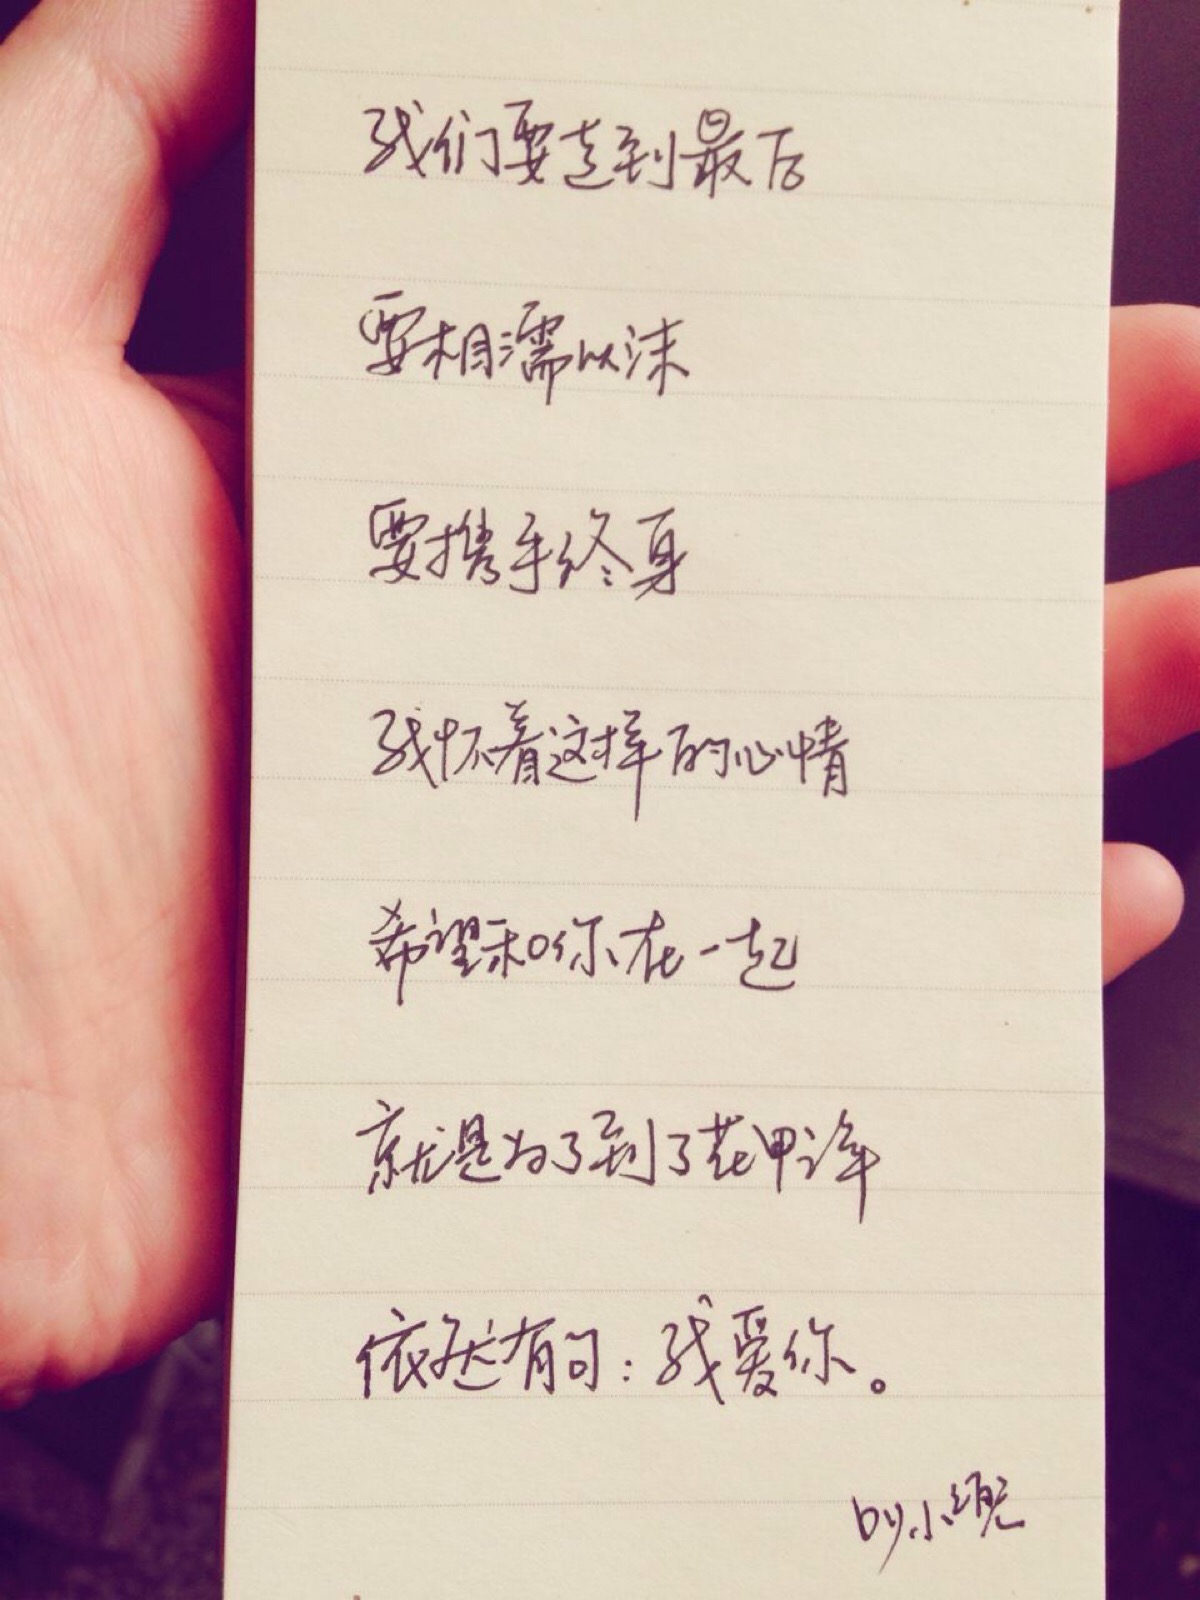 我们要走到最后
要相濡以沫
要携手终身
我怀着这样的心情
希望和你在一起
就是为了到了花甲许年
依然有句：我爱你。
by.小